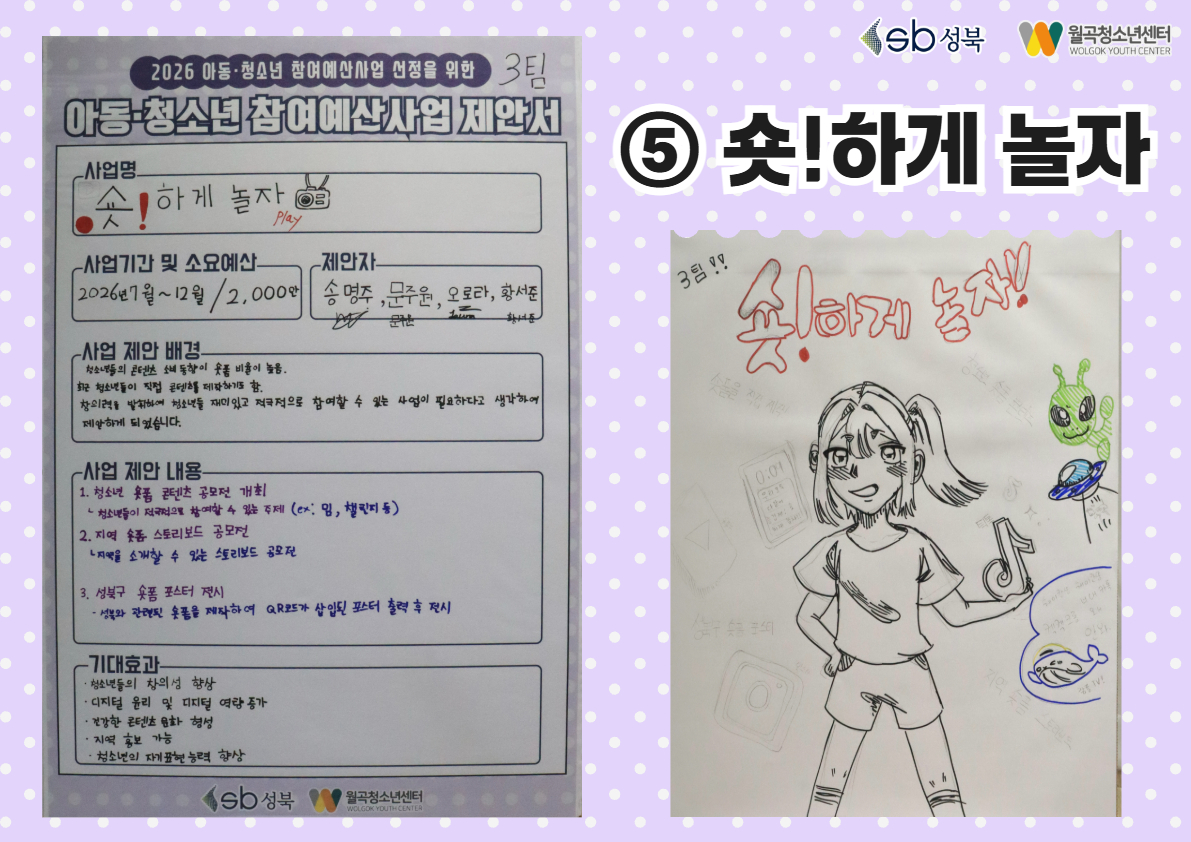 sb 성북
월곡청소년센터
WOLGOK YOUTH CENTER
2026 아동·청소년 참여예산사업 선정을 위한
3팀
아동·청소년 참여예산사업 제안서
사업명
숏!하게 놀자
play
사업기간 및 소요예산
2026년 7월 ~ 12월 / 2,000만
제안자
송명주, 문주원, 오로타, 황서준
문주원
황서준
사업 제안 배경
청소년들의 콘텐츠 소비 동향이 숏폼 비율이 높음.
최근 청소년들이 직접 콘텐츠를 제작하기도 함.
창의력을 발휘하여 청소년들 재미있고 적극적으로 참여할 수 있는 사업이 필요하다고 생각하여
제안하게 되었습니다.
사업 제안 내용
1. 청소년 숏폼 콘텐츠 공모전 개최
ㄴ 청소년들이 적극적으로 참여할 수 있는 주제 (ex: 밈, 챌린지 등)
2. 지역 숏폼 스토리보드 공모전
ㄴ지역을 소개할 수 있는 스토리보드 공모전
3. 성북구 숏폼 포스터 전시
- 성북와 관련된 숏폼을 제작하여 QR코드가 삽입된 포스터 출력 후 전시
기대효과
· 청소년들의 창의성 향상
· 디지털 윤리 및 디지털 역량 증가
· 건강한 콘텐츠 문화 형성
· 지역 홍보 가능
· 청소년의 자기표현 능력 향상
sb 성북
월곡청소년센터
WOLGOK YOUTH CENTER
⑤ 숏!하게 놀자
3팀!!
숏!하게 놀자!!